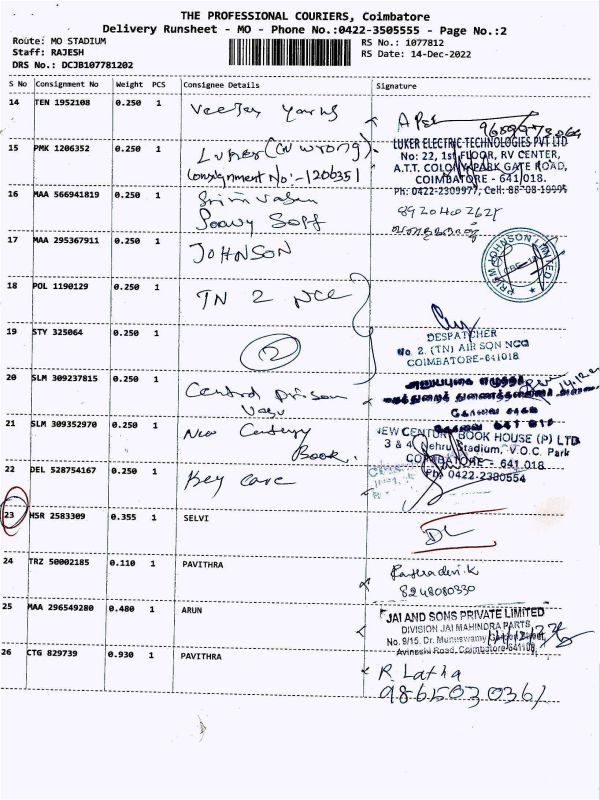 THE PROFESSIONAL COURIERS, Coimbatore
Delivery Runsheet - MO - Phone No.:0422-3505555 - Page No.:2
Route: MO STADIUM
RS No.: 1077812
Staff: RAJESH
RS Date: 14-Dec-2022
DRS No.: DCJB107781202
S No Consignment No Weight PCS Consignee Details Signature
14 TEN 1952108 0.250 1
15 PMK 1206352 0.250 1 Luker (CN wrong)
Consignment No:-1206351
LUKER ELECTRIC TECHNOLOGIES PVT LTD
No: 22, 1st FLOOR, RV CENTER,
A.T.T. COLONY, PARK GATE ROAD,
COIMBATORE - 641 018.
Ph: 0422-230997
16 MAA 566941819 0.250 1 Srinivasan
17 MAA 295367911 0.250 1 JOHNSON
PRISM JOHNSON LIMITED
18 POL 1190129 0.250 1 TN 2 NCC
19 STY 325064 0.250 1 2
DESPATCHER
No. 2. (TN) AIR SQN NCC
COIMBATORE-641018
20 SLM 309237815 0.250 1 Central prison
14.12.22
21 SLM 309352970 0.250 1 New Century
Book.
NEW CENTURY BOOK HOUSE (P) LTD
3 & 4 Nehru Stadium, V.O.C. Park
COIMBATORE - 641 018
Ph: 0422-2380554
22 DEL 528754167 0.250 1 Key Care
23 HSR 2583309 0.355 1 SELVI DL
24 TRZ 50002185 0.110 1 PAVITHRA
8248080330
25 MAA 296549280 0.480 1 ARUN
JAI AND SONS PRIVATE LIMITED
DIVISION JAI MAHINDRA PARTS
No. 9/15, Dr. Munuswamy Garden Street,
Avinashi Road, Coimbatore-641108
26 CTG 829739 0.930 1 PAVITHRA R. Latha
9865030361